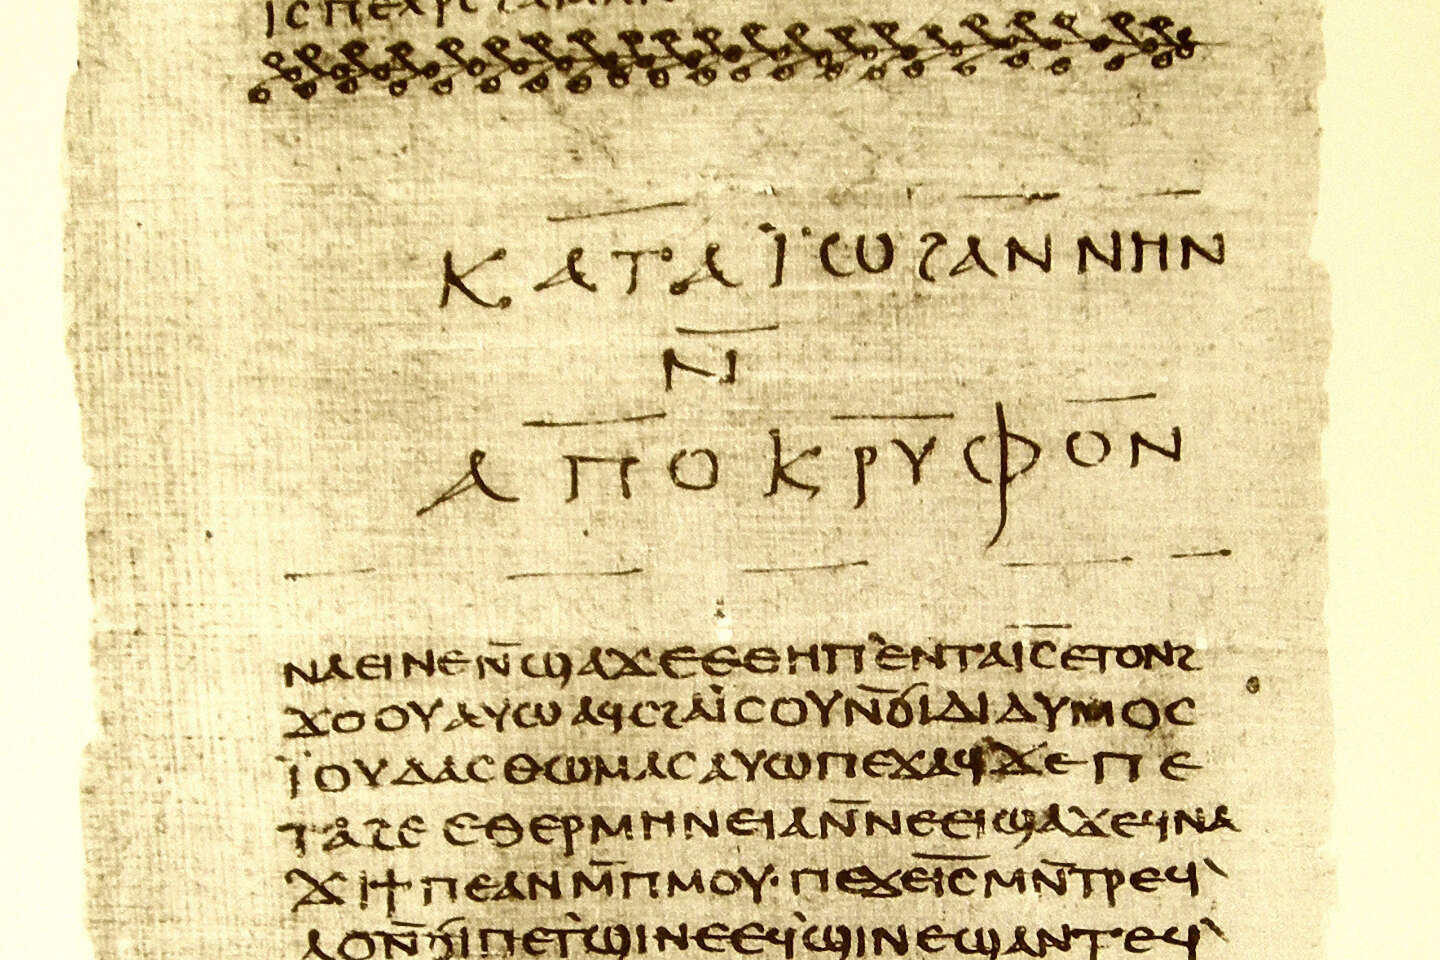 ⲕⲁⲧⲁ ⲓ̈ⲱϩⲁⲛⲛⲏⲛ
ⲛ̅
ⲁⲡⲟⲕⲣⲩⲫⲟⲛ
ⲛⲁⲉⲓ ⲛⲉ ⲛ̅ϣⲁϫⲉ ⲉⲑⲏⲡ ⲉⲛⲧⲁ ⲓ̅ⲥ̅ ⲉⲧⲟⲛϩ
ϫⲟⲟⲩ ⲁⲩⲱ ⲁϥⲥϩⲁⲓ̈ⲥⲟⲩ ⲛ̅ϭⲓ ⲇⲓⲇⲩⲙⲟⲥ
ⲓ̈ⲟⲩⲇⲁⲥ ⲑⲱⲙⲁⲥ ⲁⲩⲱ ⲡⲉϫⲁϥ ϫⲉ ⲡⲉ
ⲧⲁϩⲉ ⲉⲑⲉⲣⲙⲏⲛⲉⲓⲁ ⲛ̅ⲛⲉⲉⲓϣⲁϫⲉ ϥⲛⲁ
ϫⲓ ϯⲡⲉ ⲁⲛ ⲙ̅ⲡⲙⲟⲩ· ⲡⲉϫⲉ ⲓ̅ⲥ̅ ⲙⲛ̅ⲧⲣⲉϥ
ⲗⲟ ⲛ̅ϭⲓ ⲡⲉⲧϣⲓⲛⲉ ⲉϥϣⲓⲛⲉ ϣⲁⲛⲧⲉϥ